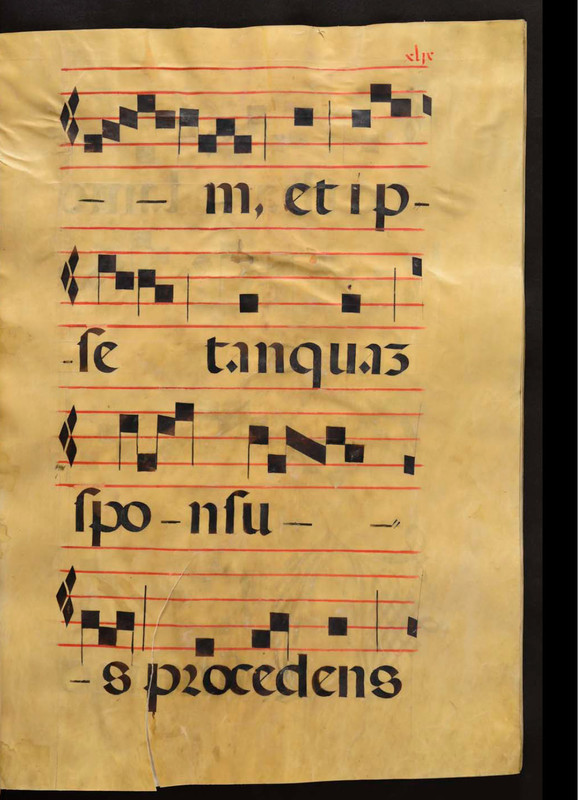 – – m, et ip-
-se tanquaʒ
spo-nsu – –
-s procedens